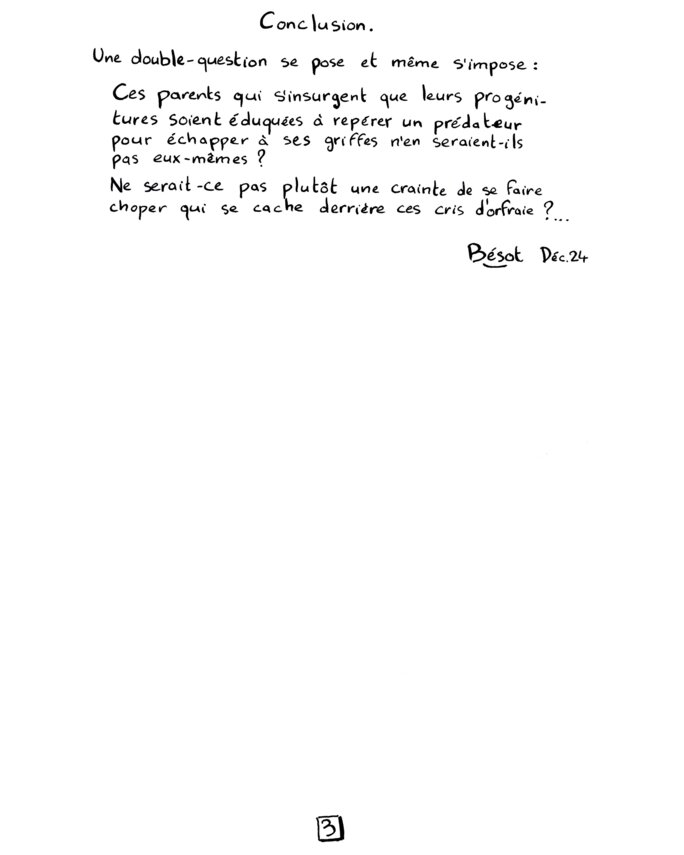 Conclusion.
Une double-question se pose et même s'impose :
Ces parents qui s'insurgent que leurs progéni-
tures soient éduquées à repérer un prédateur
pour échapper à ses griffes n'en seraient-ils
pas eux-mêmes ?
Ne serait-ce pas plutôt une crainte de se faire
choper qui se cache derrière ces cris d'orfraie ?...
Bésot Déc.24
3